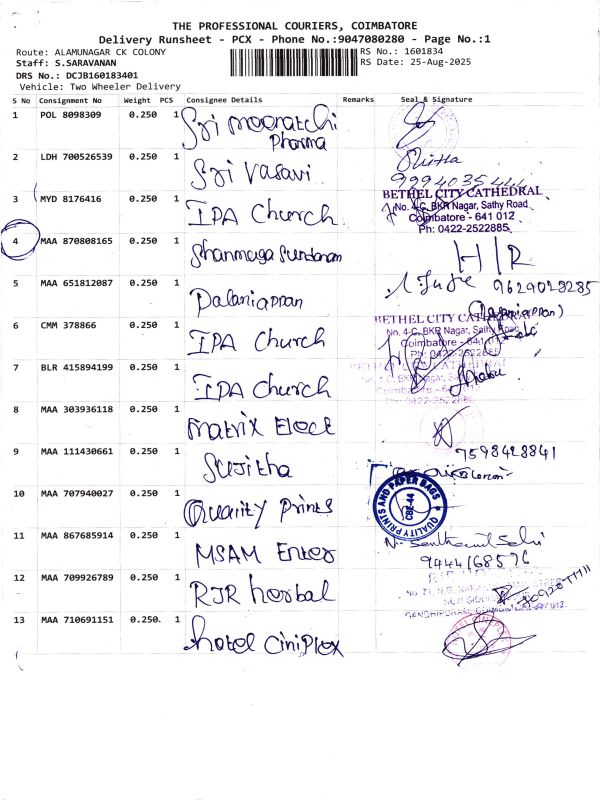 THE PROFESSIONAL COURIERS, COIMBATORE
Delivery Runsheet - PCX - Phone No.:9047080280 - Page No.:1
Route: ALAMUNAGAR CK COLONY RS No.: 1601834
Staff: S.SARAVANAN RS Date: 25-Aug-2025
DRS No.: DCJB160183401
Vehicle: Two Wheeler Delivery
S No Consignment No Weight PCS Consignee Details Remarks Seal & Signature
1 POL 8098309 0.250 1 Sri meenatchi
Pharma
2 LDH 700526539 0.250 1 Sri Vasavi
3 MYD 8176416 0.250 1 IPA Church
BETHEL CITY CATHEDRAL
No. 4-C, BKR Nagar, Sathy Road
Coimbatore - 641 012
Ph: 0422-2522885
4 MAA 870808165 0.250 1 Shanmuga Sundaram H/R
5 MAA 651812087 0.250 1 Palaniappan 9629029285
6 CMM 378866 0.250 1 IPA Church
BETHEL CITY CATHEDRAL
No. 4-C, BKR Nagar, Sathy Road
Coimbatore - 641 012
Ph: 0422-2522885
7 BLR 415894199 0.250 1 IPA Church
8 MAA 303936118 0.250 1 Matrix Elect
9 MAA 111430661 0.250 1 Sujitha 7598428841
10 MAA 707940027 0.250 1 Quality Prints
QUALITY PRINTS AND PAPER BAGS
CBE-44
11 MAA 867685914 0.250 1 MSAM Enter
9444168576
12 MAA 709926789 0.250 1 RJR herbal
13 MAA 710691151 0.250. 1 hotel Ciniplex